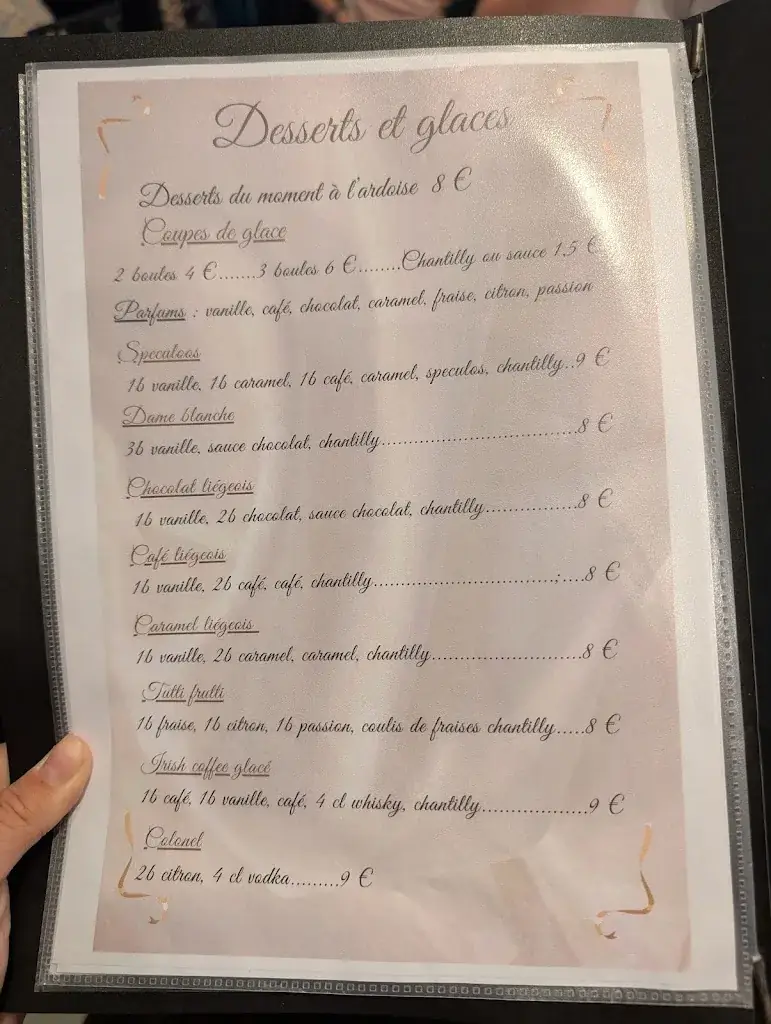 Desserts et glaces
Desserts du moment à l'ardoise 8 €
Coupes de glace
2 boules 4 €.......3 boules 6 €........Chantilly ou sauce 1,5 €
Parfums : vanille, café, chocolat, caramel, fraise, citron, passion
Speculoos
1b vanille, 1b caramel, 1b café, caramel, speculos, chantilly..9 €
Dame blanche
3b vanille, sauce chocolat, chantilly.......................................8 €
Chocolat liégeois
1b vanille, 2b chocolat, sauce chocolat, chantilly..................8 €
Café liégeois
1b vanille, 2b café, café, chantilly...................................;....8 €
Caramel liégeois
1b vanille, 2b caramel, caramel, chantilly.............................8 €
Tutti frutti
1b fraise, 1b citron, 1b passion, coulis de fraises chantilly.....8 €
Irish coffee glacé
1b café, 1b vanille, café, 4 cl whisky, chantilly.....................9 €
Colonel
2b citron, 4 cl vodka.........9 €